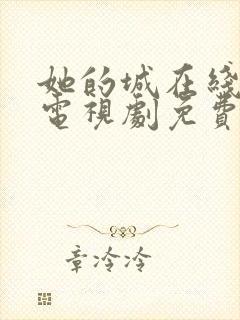 她的城在綫
電視劇免費
章冷冷